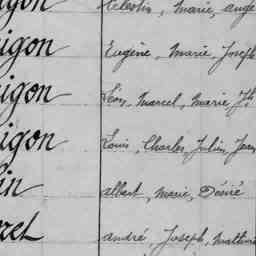 igon Célestin, Marie, ange
igon Eugène, Marie, Joseph
igon Léon, Marcel, Marie, Jh
igon Louis, Charles, Julien, Jean
in albert, Marie, Désiré
ret andré, Joseph, Mathurin